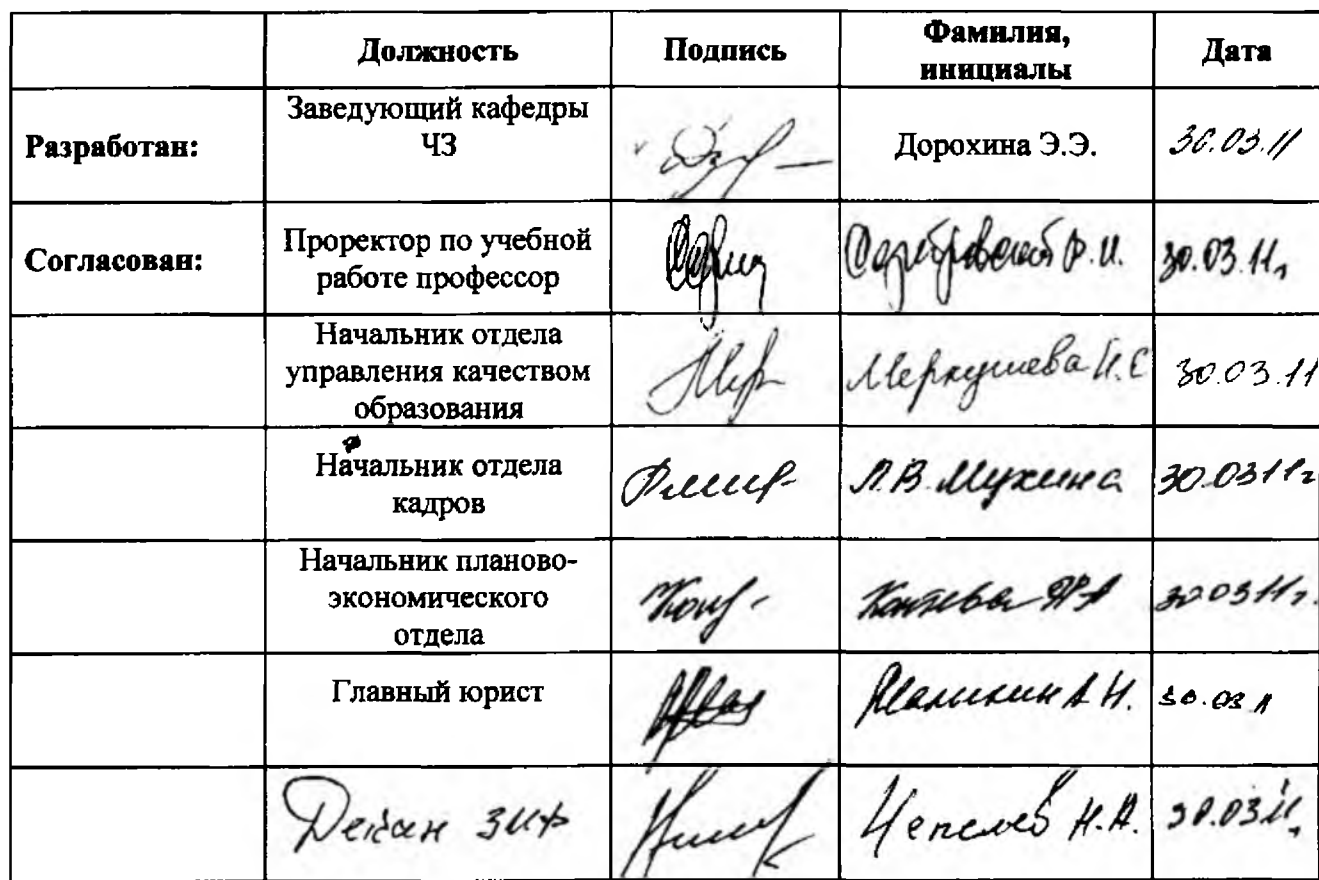 Должность Подпись Фамилия, инициалы Дата
Разработан: Заведующий кафедры ЧЗ Дорохина Э.Э. 30.03.11
Согласован: Проректор по учебной работе профессор 30.03.11г
Начальник отдела управления качеством образования Меркушева И.С 30.03.11
Начальник отдела кадров Л.В. Мухина 30.0311г
Начальник планово-экономического отдела 30.0311г.
Главный юрист А.Н. 30.03.11
Декан ЗИФ Чепелев Н.А. 30.03.11г